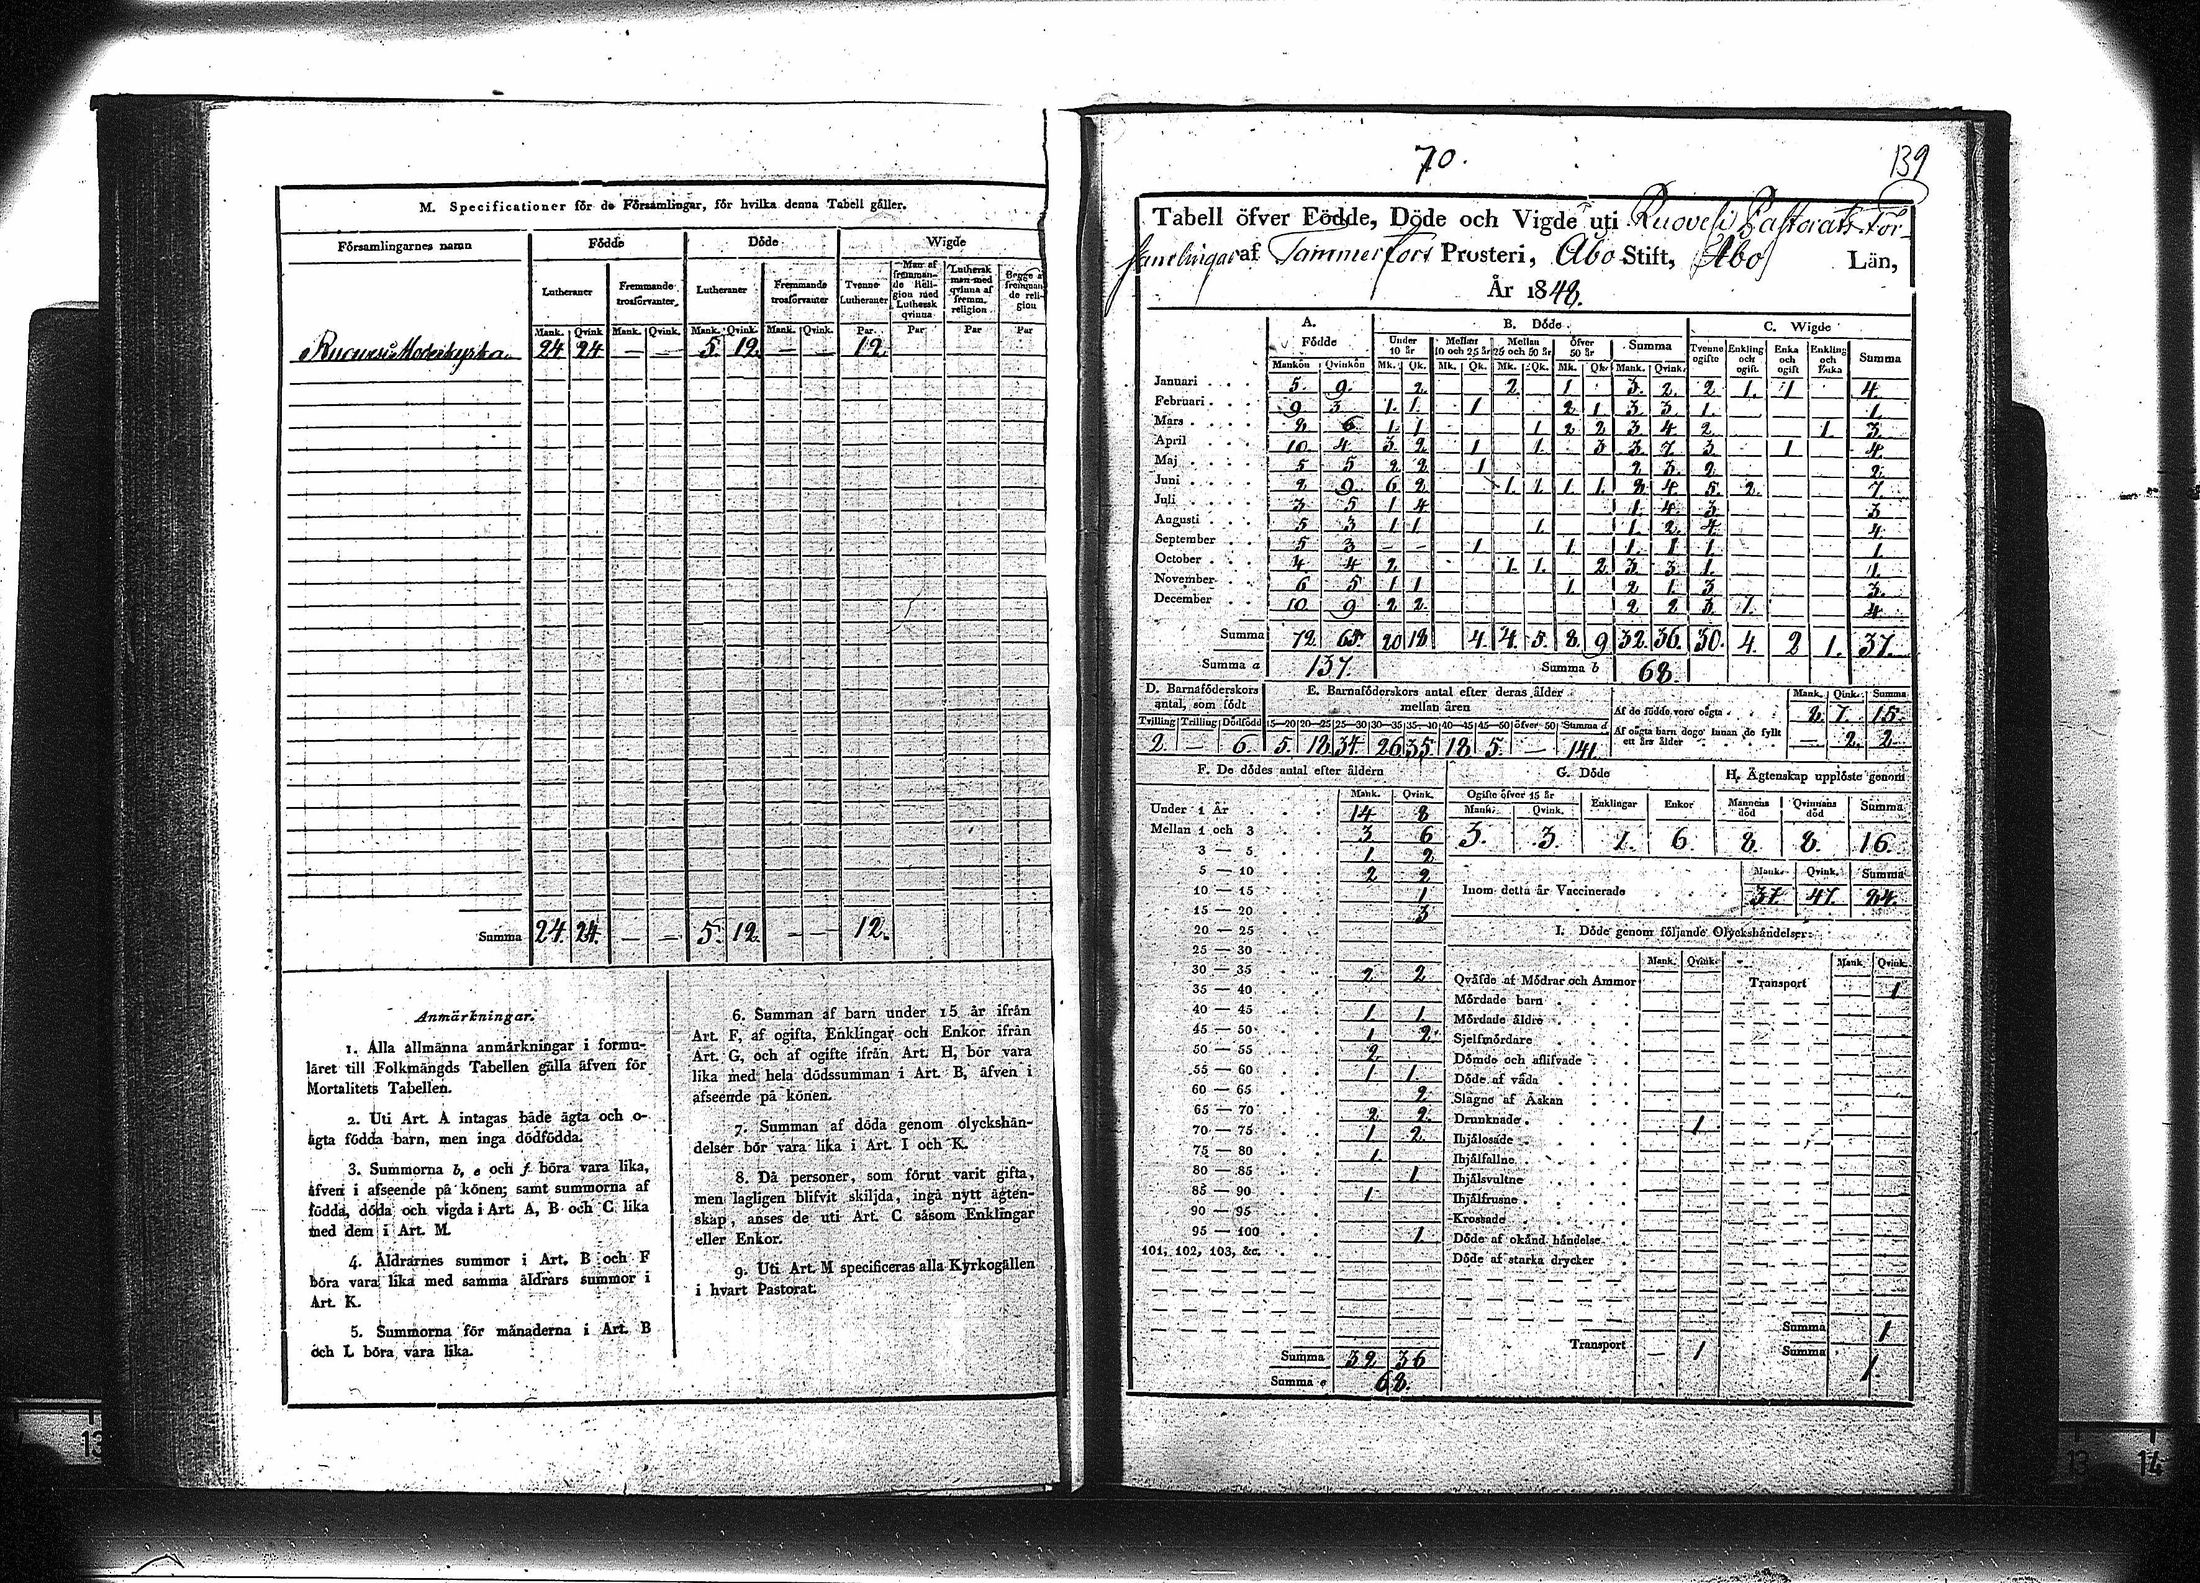 M. Specificationer för de Församlingar, för hvilka denna Tabell gäller.
Församlingarnes namn Födde Döde Wigde
Lutheraner Fremmande trosförvanter Lutheraner Fremmande trosförvanter Tvenne Lutheraner Man af fremmande Religion med Luthersk qvinna Luthersk man med qvinna af fremm. religion Begge af fremmande religion
Mank. Qvink. Mank. Qvink. Mank. Qvink. Mank. Qvink. Par. Par Par Par
Ruovesi Moderkyrka 24 24 — — 5. 12. — — 12.
Summa 24. 24. — — 5. 12. — — 12.
Anmärkningar.
1. Alla allmänna anmärkningar i formu-
läret till Folkmängds Tabellen gälla äfven för
Mortalitets Tabellen.
2. Uti Art. A intagas både ägta och o-
ägta födda barn, men inga dödfödda.
3. Summorna b, e och f böra vara lika,
äfven i afseende på könen; samt summorna af
födda, döda och vigda i Art. A, B och C lika
med dem i Art. M.
4. Åldrarnes summor i Art. B och F
böra vara lika med samma åldrars summor i
Art. K.
5. Summorna för månaderna i Art. B
och L böra vara lika.
6. Summan af barn under 15 år ifrån
Art. F, af ogifta, Enklingar och Enkor ifrån
Art. G, och af ogifte ifrån Art. H, bör vara
lika med hela dödssumman i Art. B, äfven i
afseende på könen.
7. Summan af döda genom olyckshän-
delser bör vara lika i Art. I och K.
8. Då personer, som förut varit gifta,
men lagligen blifvit skiljda, ingå nytt ägten-
skap, anses de uti Art. C såsom Enklingar
eller Enkor.
9. Uti Art. M specificeras alla Kyrkogällen
i hvart Pastorat.
70.
139
Tabell öfver Födde, Döde och Vigde uti Ruovesi Pastorats För-
samlingar af Tammerfors Prosteri, Åbo Stift, Åbo Län,
År 1848.
A. Födde B. Döde C. Wigde
Under 10 år Mellan 10 och 25 år Mellan 25 och 50 år öfver 50 år Summa Tvenne ogifte Enkling och ogift Enka och ogift Enkling och Enka Summa
Mankön Qvinkön Mk. Qk. Mk. Qk. Mk. Qk. Mk. Qk. Mank. Qvink.
Januari 5. 9. 2. 2. 1. 3. 2. 2. 1. 1 4.
Februari 9 3 1. 1. 1 2 1 3 3 1. 1
Mars 8 6 1. 1 1 2 2 3 4 2 1 3
April 10 4 3. 2 1 1. 3 3 7 3 1 4
Maj 5 5 2 2 1 2 3 2 2.
Juni 2 9 6 2 1. 1. 1. 1. 8 4 5. 2. 7.
Juli 3 5 1 4 1. 4. 3 3
Augusti 5 3 1 1 1. 1. 2 4. 4.
September 5 3 — — 1 1. 1. 1 1. 1
October 4 4 2. 1. 1. 2. 3 3 1. 1.
November 6 5 1 1 1. 2 1. 3 3.
December 10 9 2 2. 2 2 3 1. 4
Summa 72. 65. 20 18 4 4. 5. 8. 9 32. 36. 30. 4. 2 1. 37.
Summa a 137. Summa b 68.
D. Barnaföderskors antal, som födt
E. Barnaföderskors antal efter deras ålder mellan åren
Mank. Qink. Summa
Tvilling Trilling Dödfödd 15—20 20—25 25—30 30—35 35—40 40—45 45—50 öfver 50 Summa d
2. — 6. 5. 18. 34. 26 35. 18 5. — 141.
Af de födde voro oägta 8. 7. 15.
Af oägta barn dogo innan de fyllt ett års ålder — 2. 2
F. De dödes antal efter åldern
Mank. Qvink.
Under 1 År 14 8
Mellan 1 och 3 3 6
3 — 5 1 2
5 — 10 2 2
10 — 15 1
15 — 20 3
20 — 25
25 — 30
30 — 35 2 2
35 — 40
40 — 45 1 1
45 — 50 1 2
50 — 55 2
55 — 60 1 1
60 — 65 2
65 — 70 2 2
70 — 75 1 2
75 — 80 1.
80 — 85 1
85 — 90 1
90 — 95
95 — 100 1
101, 102, 103, &c.
Summa 32 36
Summa e 68.
G. Döde
Ogifte öfver 15 år Enklingar Enkor
Mank. Qvink.
3. 3. 1. 6.
H. Ägtenskap upplöste genom
Mannens död Qvinnans död Summa
8. 8. 16.
Mank. Qvink. Summa
Inom detta år Vaccinerade 37. 47. 84.
I. Döde genom följande Olyckshändelser:
Mank. Qvink. Mank. Qvink.
Qväfde af Mödrar och Ammor Transport 1
Mördade barn
Mördade äldre
Sjelfmördare
Dömde och aflifvade
Döde af våda
Slagne af Åskan
Drunknade 1
Ihjälosade
Ihjälfallne
Ihjälsvultne
Ihjälfrusne
Krossade
Döde af okänd händelse
Döde af starka drycker
Summa 1
Transport — 1 Summa 1.
13
13
14